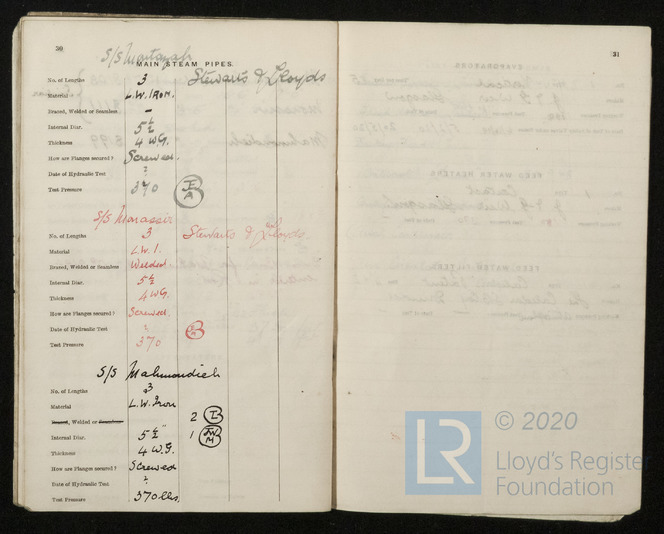 30
S/S Mantaqah
MAIN STEAM PIPES.
No. of Lengths 3 Stewarts & Lloyds
Material L.W. IRON.
Brazed, Welded or Seamless —
Internal Diar. 5½
Thickness 4 W.G.
How are Flanges secured? Screwed.
Date of Hydraulic Test ?
Test Pressure 370
S/S Marassir
No. of Lengths 3 Stewarts & Lloyds
Material L.W.I.
Brazed, Welded or Seamless Welded
Internal Diar. 5½
Thickness 4 WG.
How are Flanges secured? Screwed.
Date of Hydraulic Test ?
Test Pressure 370
S/S Mahmoudieh
No. of Lengths 3
Material L.W. Iron
Brazed, Welded or Seamless 2
Internal Diar. 5½" 1
Thickness 4 W.G.
How are Flanges secured? Screwed
Date of Hydraulic Test ?
Test Pressure 370 lbs.
31
LR
© 2020
Lloyd's Register
Foundation